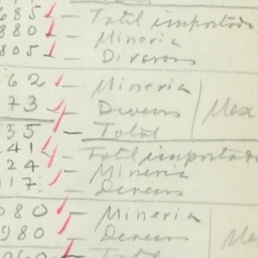 685 - Total importado
880 - Mineria
805 - Diversos
62 - Mineria
73 - Diversos Mex
35 - Total
41 - Total importado
24 - Mineria
17 - Diversos
080 - Mineria
980 - Diversos Me
Total